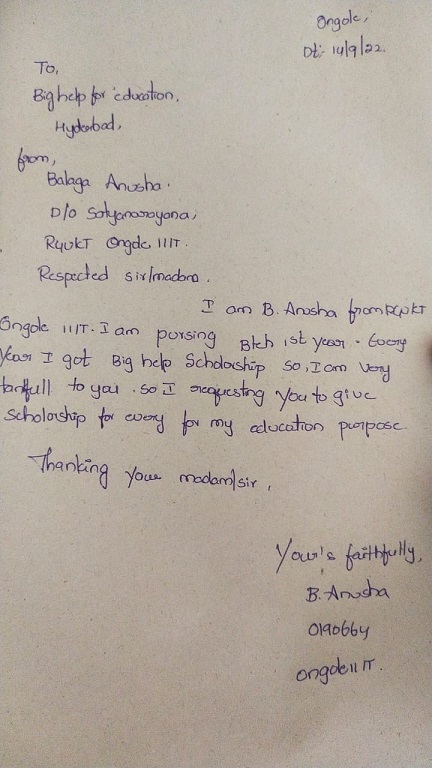 Ongole,
Dt: 14/9/22.
To,
Big help for education,
Hyderbad,
from,
Balaga Anusha.
D/o Satyanarayana,
RGUKT Ongole IIIT.
Respected sir/madam.
I am B. Anusha from RGUKT
Ongole IIIT. I am pursing Btch 1st year. Every
Year I got Big help Scholarship so, I am very
tankfull to you. so I requesting You to give
Scholarship for every for my education purpose.
Thanking your madam/sir,
Your's faithfully,
B. Anusha
0190664
ongole IIIT.